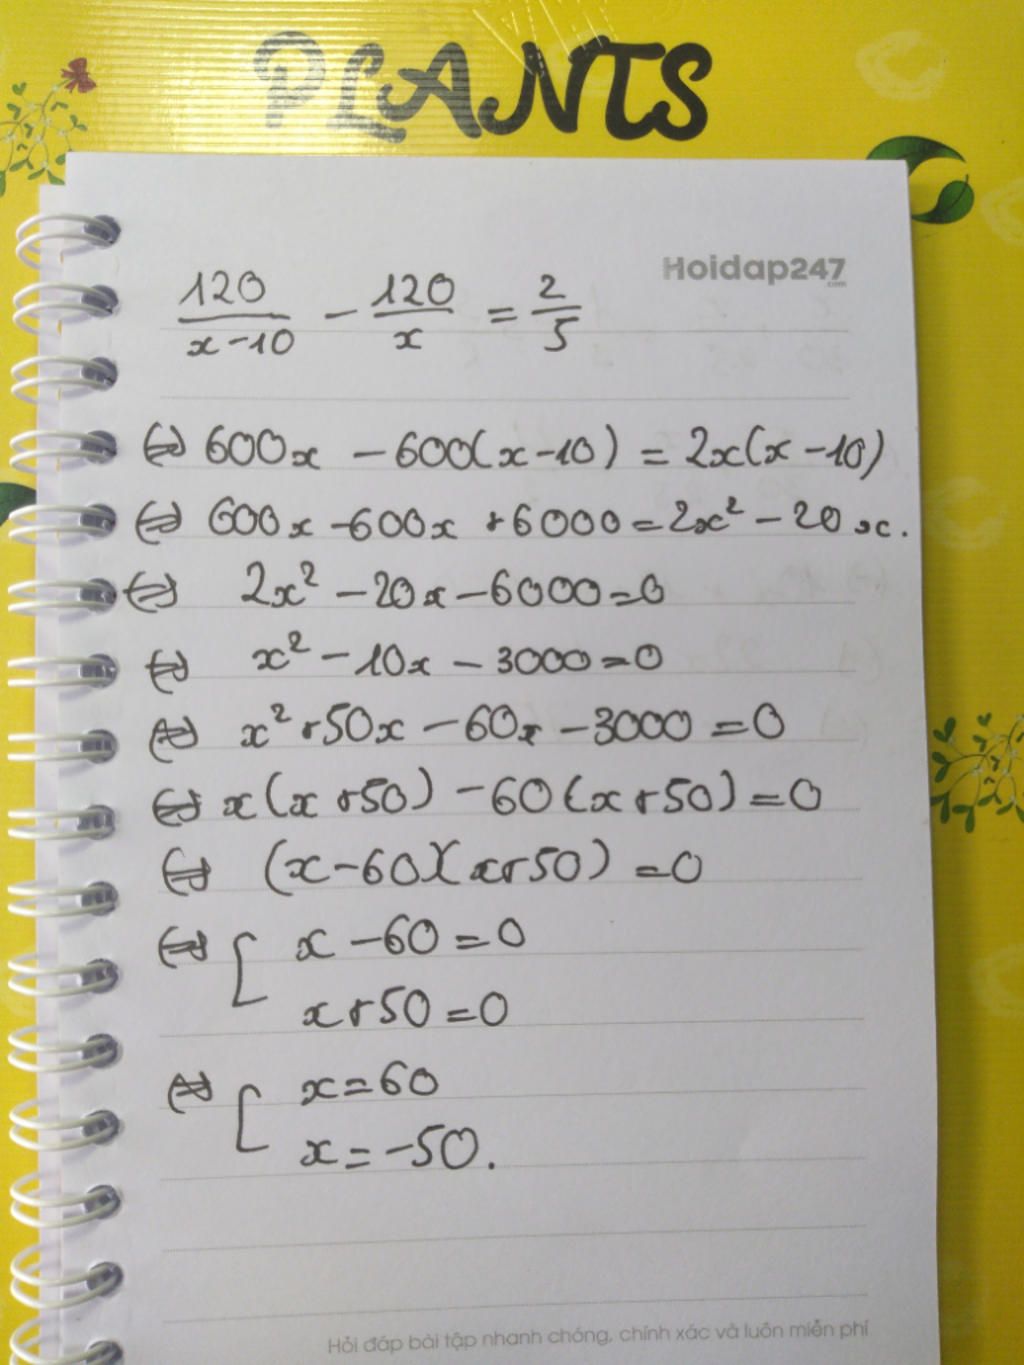 PLANTS
Hoidap247
.com
120/(x-10) - 120/x = 2/5
⇔ 600x - 600(x-10) = 2x(x-10)
⇔ 600x - 600x + 6000 = 2x² - 20x.
⇔ 2x² - 20x - 6000 = 0
⇔ x² - 10x - 3000 = 0
⇔ x² + 50x - 60x - 3000 = 0
⇔ x(x+50) - 60(x+50) = 0
⇔ (x-60)(x+50) = 0
⇔ [ x - 60 = 0
x + 50 = 0
⇔ [ x = 60
x = -50.
Hỏi đáp bài tập nhanh chóng, chính xác và luôn miễn phí